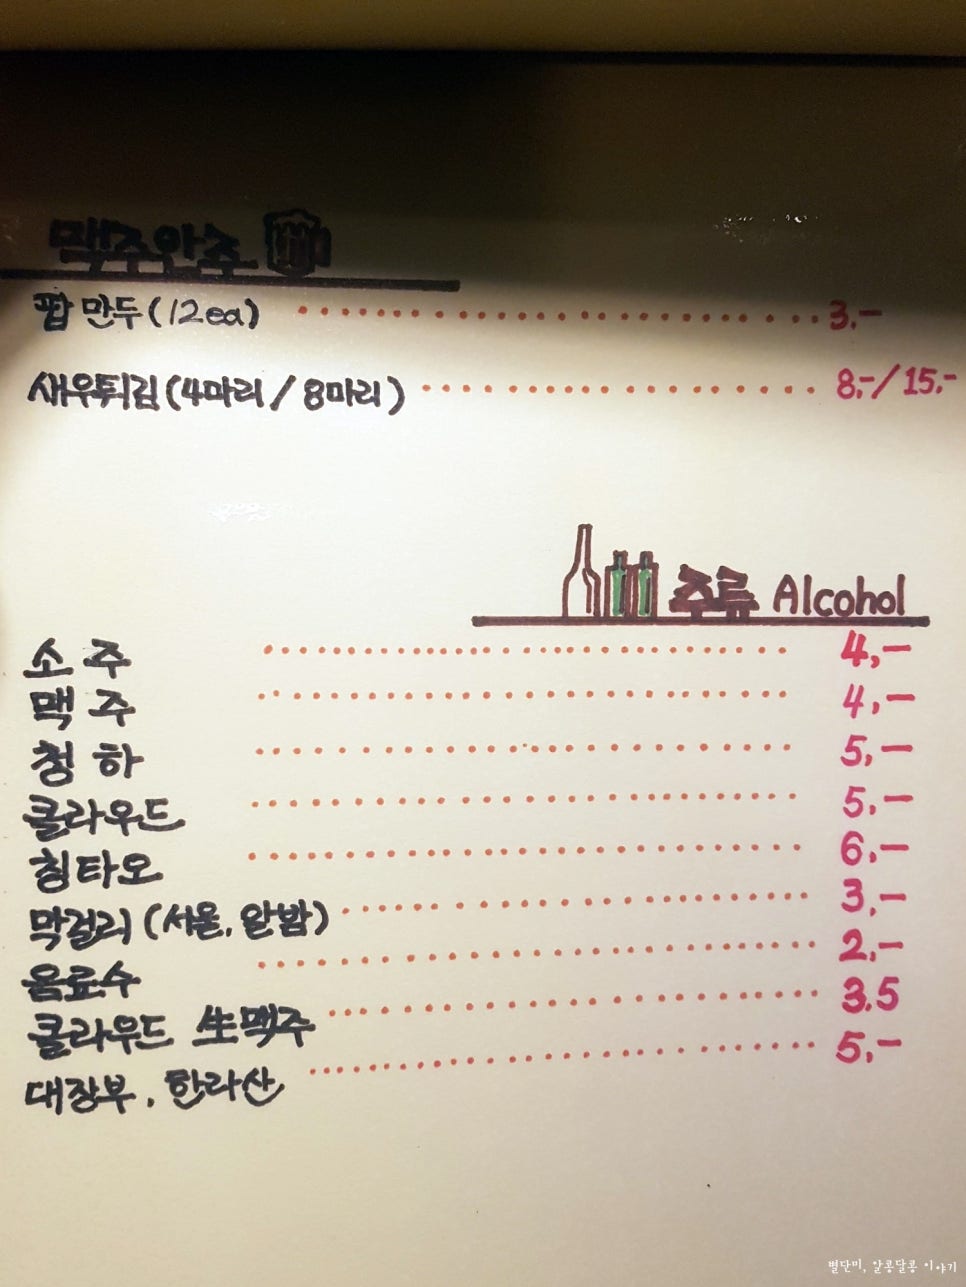 맥주안주
팝만두(12ea) 3.-
새우튀김(4마리/8마리) 8.-/15.-
주류 Alcohol
소주 4,-
맥주 4,-
청하 5,-
클라우드 5,-
칭타오 6.-
막걸리(서울, 알밤) 3.-
음료수 2.-
클라우드 生맥주 3.5
대장부, 한라산 5,-
별단미, 알콩달콩 이야기